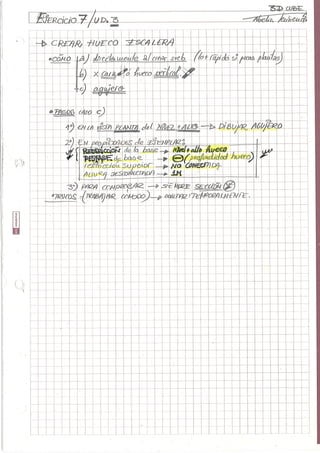 BD CUBE
EJERCICIO 7 / UD. 3
→ CREAR HUECO ESCALERA
• CÓMO a) directamente al crear web (for rápido si pocas plantas)
b) x cara, o hueco vertical
c) agujero
• PASOS caso c)
1º) EN LA VISTA PLANTA del NIVEL + ALTO → DIBUJAR AGUJERO
2º) EN propiedades de EJEMPLAR:
RESTRICCIÓN de la base → nivel + alto hueco
DESFASE de base → ⊖ (profundidad hueco)
restricción superior → NO CONECTADA
ALTURA DESCONECTADA →
3º) PARA COMPROBAR → SIEMPRE SECCIÓN
• TRUCOS (TRABAJAR CÓMODO) → OCULTAR TEMPORALMENTE.